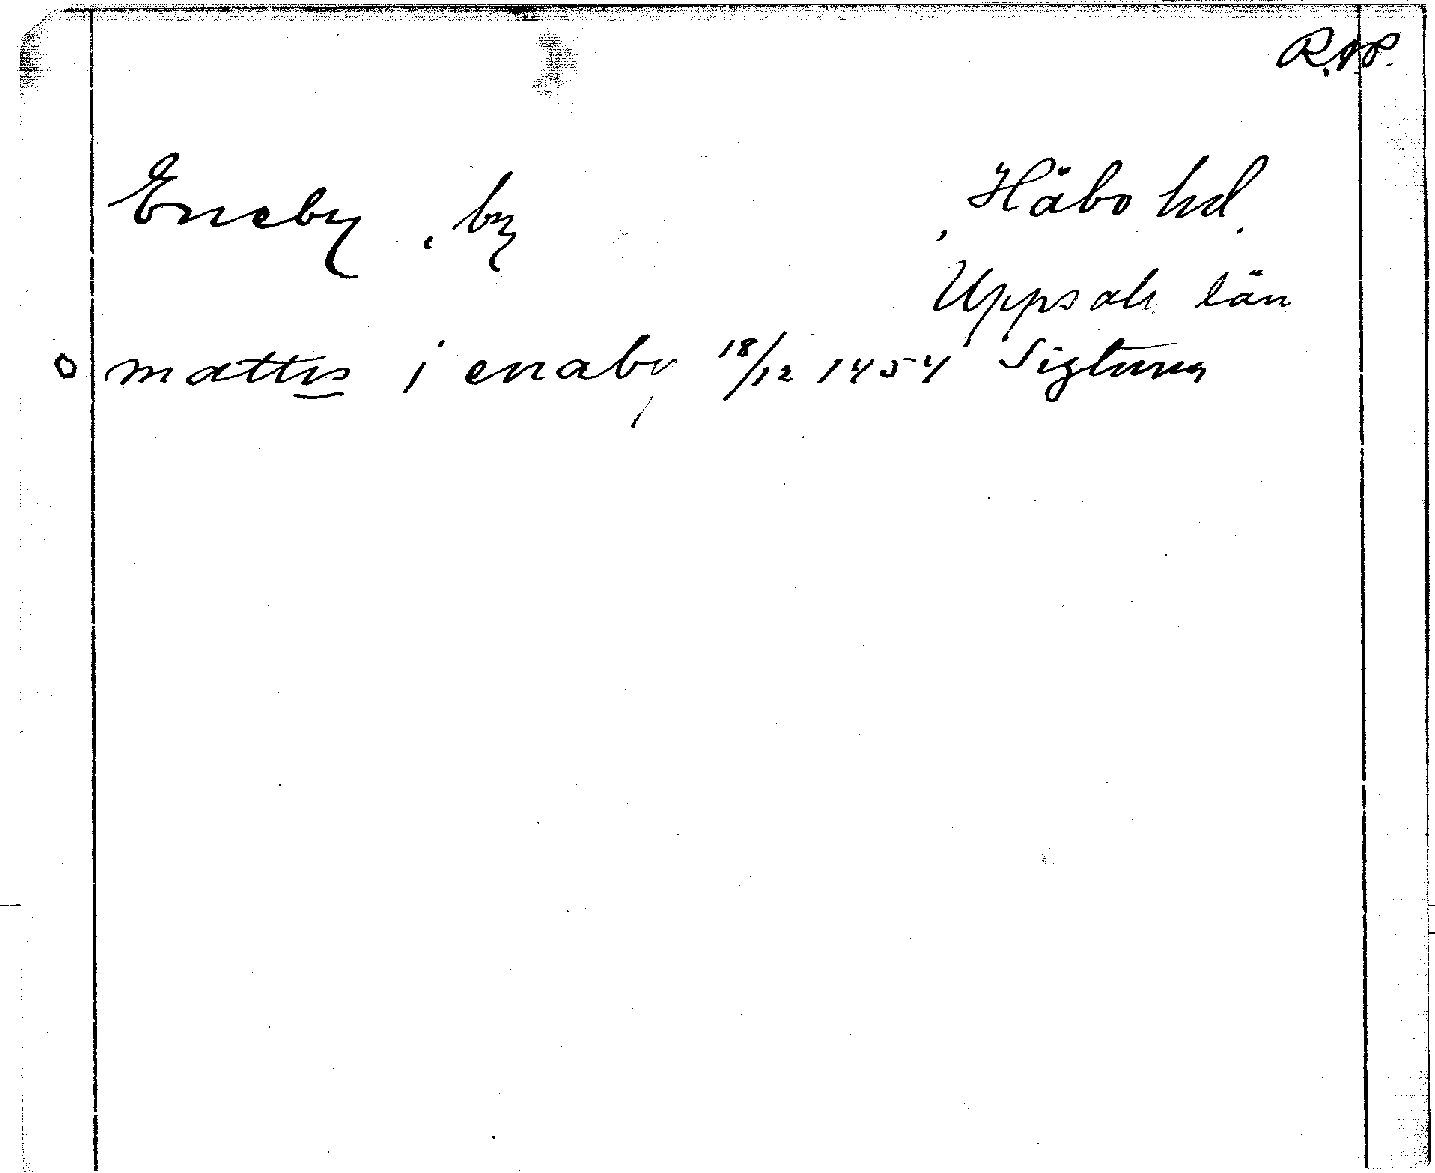 R.AP.
Eneby, by Håbo hd.
Uppsala län
o mattis i enaby 18/12 1454 Sigtuna